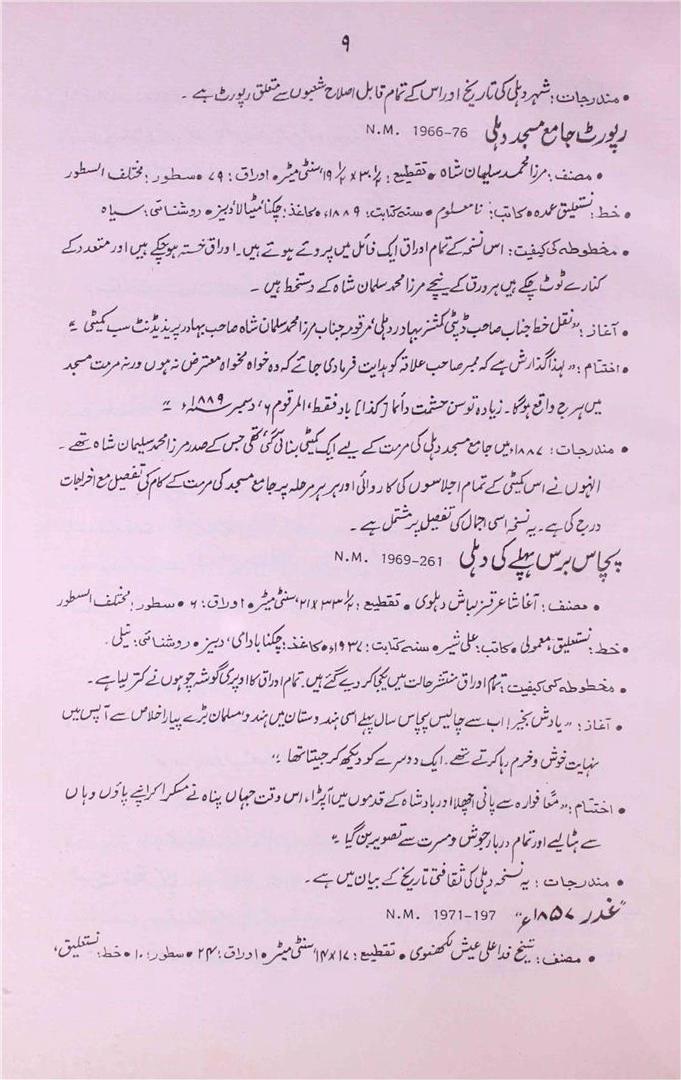 ۹
• مندرجات: شہر دہلی کی تاریخ اور اس کے تمام قابل اصلاح شعبوں سے متعلق رپورٹ ہے ۔
رپورٹ جامع مسجد دہلی N.M. 1966-76
• مصنف: مرزا محمد سلیمان شاہ • تقطیع: ۳۰ ۱/۲ × ۱۹ ۱/۲ سنٹی میٹر • اوراق: ۷۹ • سطور: مختلف السطور
• خط: نستعلیق عمدہ • کاتب: نامعلوم • سنہ کتابت: ۱۸۸۹ء • کاغذ: چکنا مٹیالا، دبیز • روشنائی: سیاہ
• مخطوطہ کی کیفیت: اس نسخہ کے تمام اوراق ایک فائل میں پروئے ہوئے ہیں۔ اوراق خستہ ہو چکے ہیں اور متعدد کے
کنارے ٹوٹ چکے ہیں ہر ورق کے نیچے مرزا محمد سلمان شاہ کے دستخط ہیں ۔
• آغاز: "نقل خط جناب صاحب ڈپٹی کمشنر بہادر دہلی، مرقوم جناب مرزا محمد سلمان شاہ صاحب بہادر پریذیڈنٹ سب کمیٹی"
• اختتام: "لہذا گذارش ہے کہ ممبر صاحب علاقہ کو ہدایت فرمادی جائے کہ وہ خواہ مخواہ معترض نہ ہوں ورنہ مرمت مسجد
میں ہرج واقع ہوگا۔ زیادہ توسن حشمت دائما [کذا] باد فقط، المرقوم ۶، دسمبر ۱۸۸۹ء"
• مندرجات: ۱۸۸۷ء میں جامع مسجد دہلی کی مرمت کے لیے ایک کمیٹی بنائی گئی تھی جس کے صدر مرزا محمد سلیمان شاہ تھے ۔
انہوں نے اس کمیٹی کے تمام اجلاسوں کی کاروائی اور ہر ہر مرحلہ پر جامع مسجد کی مرمت کے کام کی تفصیل مع اخراجات
درج کی ہے۔ یہ نسخہ اسی اجمال کی تفصیل پر مشتمل ہے ۔
پچاس برس پہلے کی دہلی N.M. 1969-261
• مصنف: آغا شاعر قزلباش دہلوی • تقطیع: ۳۳ ۱/۲ × ۲۱ سنٹی میٹر • اوراق: ۶ • سطور: مختلف السطور
• خط: نستعلیق، معمولی • کاتب: علی شیر • سنہ کتابت: ۱۹۳۷ء • کاغذ: چکنا بادامی، دبیز • روشنائی: نیلی
• مخطوطہ کی کیفیت: تمام اوراق منتشر حالت میں یکجا کر دیے گئے ہیں۔ تمام اوراق کا اوپری گوشہ چوہوں نے کتر لیا ہے ۔
• آغاز: "یادش بخیر! اب سے چالیس پچاس سال پہلے اسی ہندوستان میں ہندو مسلمان بڑے پیار اخلاص سے آپس میں
نہایت خوش و خرم رہا کرتے تھے۔ ایک دوسرے کو دیکھ کر جیتا تھا"
• اختتام: "معاً فوارہ سے پانی اچھلا اور بادشاہ کے قدموں میں آ پڑا، اس وقت جہاں پناہ نے مسکرا کر اپنے پاؤں وہاں
سے ہٹا لیے اور تمام دربار جوش و مسرت سے تصویر بن گیا"
• مندرجات: یہ نسخہ دہلی کی ثقافتی تاریخ کے بیان میں ہے ۔
"غدر ۱۸۵۷ء" N.M. 1971-197
• مصنف: شیخ فدا علی عیش لکھنوی • تقطیع: ۱۷ × ۱۴ سنٹی میٹر • اوراق: ۲۴ • سطور: ۱۰ • خط: نستعلیق،